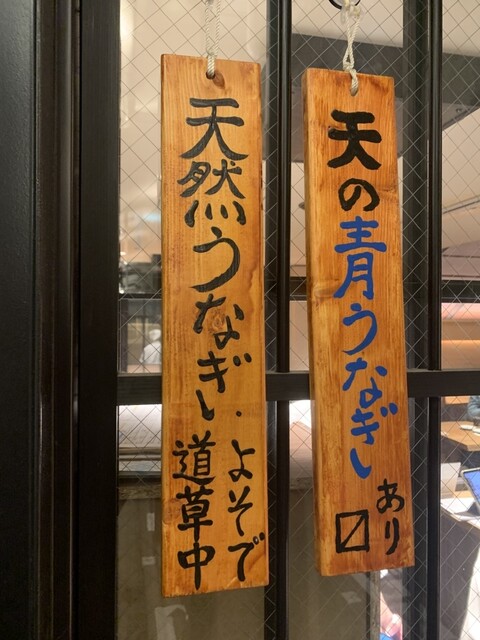 天の青うなぎ
あり〼
天然うなぎ.
よそで
道草中